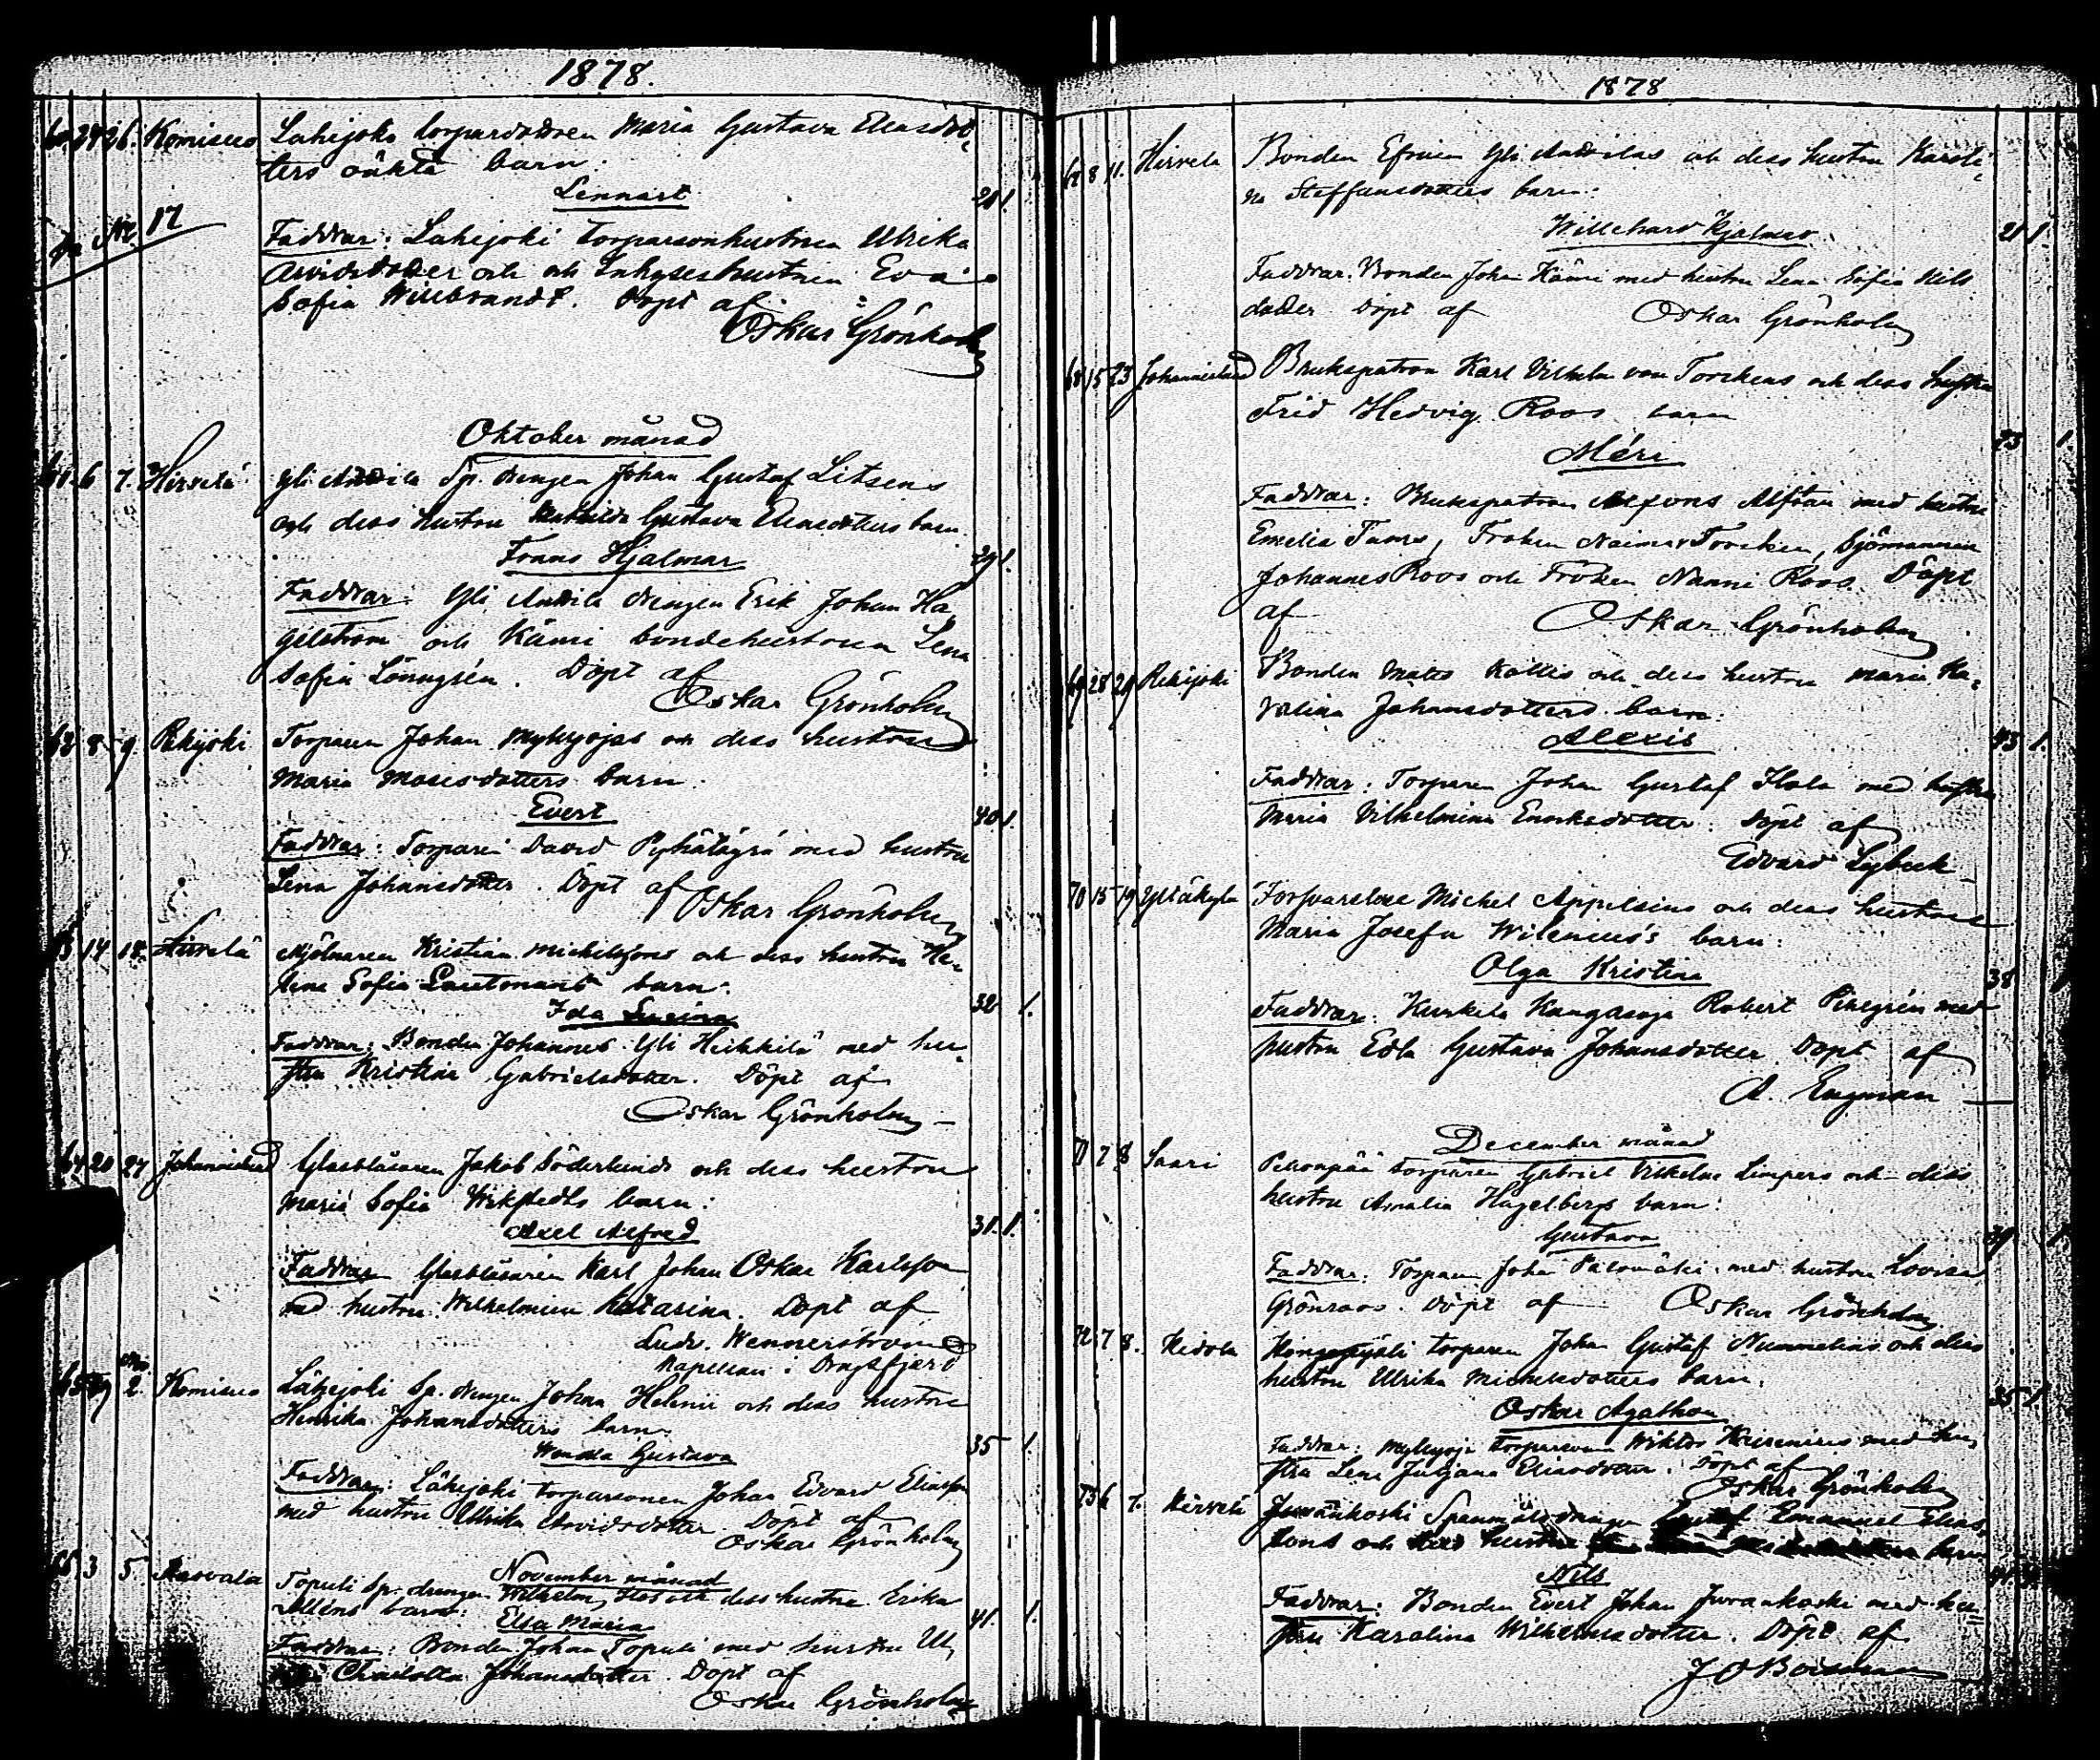 1878.
60 29 26. Komisuo Lahijoki torpardottren Maria Gustava Eliasdot-
ters oäkta barn.
Lennart
20 1.
17
Faddrar: Lahijoki torparsonhustrun Ulrika
Arvidsdotter och Inhyseshustrun Eva
Sofia Willbrandt. Döpt af
Oskar Grönholm
Oktober månad
61 6 7. Hirvelä Yli Anttila Sp. drengen Johan Gustaf Litsens
och dess hustru Mathilda Gustava Eliasdotters barn
Frans Hjalmar
29 1.
Faddrar: Yli Anttila drengen Erik Johan Ha-
gelström och Kämi bondehustrun Lena
Sofia Lönngrén. Döpt af
Oskar Grönholm
62 8 9. Rekijoki Torparen Johan Myllyojas och dess hustrus
Maria Mosesdotters barn.
Evert
40 1.
Faddrar: Torparen David Pyhälä med hustru
Lena Johansdotter. Döpt af
Oskar Grönholm
63 14 18. Hirvelä Mjölnaren Kristian Michelssons och dess hustru He-
lena Sofia barn.
Ida
32 1.
Faddrar: Bonden Johannes Yli Heikkilä med hu-
stru Kristina Gabrielsdotter. Döpt af
Oskar Grönholm
64 20 27. Johannislund Glasblåsaren Jakob Söderlunds och dess hustru
Maria Sofia Wikstedts barn:
Axel Alfred
31. 1.
Faddrar Glasblåsaren Karl Johan Oskar Karlsson
med hustru Wilhelmina Katarina. Döpt af
Ludv. Wennerström
Kapellan i Dragsfjerd
65 29 2. Komisuo Lähijoki Sp. drengen Johan Helenii och dess hustru
Henrika Johansdotters barn.
Wanda Gustava
35 1.
Faddrar: Lähijoki torparsonen Johan Edvard Eliasson
med hustru Ulrika Arvidsdotter. Döpt af
Oskar Grönholm
November månad
66 3 5. Rasvala Topuli Sp. drengen Wilhelm och dess hustru Erika
barn:
Elsa Maria
41. 1.
Faddrar: Bonden Johan Topuli med hustru Ul-
rika Charlotta Johansdotter. Döpt af
Oskar Grönholm
1878
8 11. Hirvelä Bonden Efraim Yli Anttilas och dess hustru Karoli-
na Steffansdotters barn.
Willehard Hjalmar.
21 1.
Faddrar. Bonden Johan Kämi med hustru Lena Sofia Nils
dotter Döpt af Oskar Grönholm
68 15 23 Johannislund Brukspatron Karl Vilhelm von Torckens och dess hustru
Frid Hedvig Roos barn
Méri
23 1.
Faddrar: Brukspatron Alfons Alftan med hustru
Emelia Fröken Naimi Torcken, Sjömannen
Johannes Roos och Fröken Nanni Roos. Döpt
af
Oskar Grönholm
69 28 29 Rekijoki Bonden Mats Kollis och dess hustru Maria Ka-
rolina Johansdotters barn.
Alexis
43 1.
Faddrar: Torparen Johan Gustaf med hustru
Maria Vilhelmina Enoksdotter. Döpt af
Edvard Lybeck
70 15 19 Yltäkylä Försvarslöse Michel Appelsins och dess hustrus
Maria Josefa Wilenius's barn:
Olga Kristina
38
Faddrar. Kurkela Kangasoja Robert med
hustru Edla Gustava Johansdotter. Döpt af
A. Engman
December månad
71 7 8 Saari torparen Gabriel Vilhelm Limpers och dess
hustru Amalia Hagelbergs barn:
Gustava
39 1
Faddrar. Torparen Johan Palomäki med hustru Lovisa
Grönroos. Döpt af Oskar Grönholm
72 7 8. Ketola torparen Johan Gustaf Nummelins och dess
hustru Ulrika Michelsdotters barn.
Oskar Agathon
35 1
Faddrar: Myllyoja torparsonen Wiktor med hu-
stru Lena Juljana Eliasdotter. Döpt af
Oskar Grönholm
73 6 7. Hirvelä Juvankoski Spanmålsdrengen Gustaf Emanuel Elias-
sons och dess hustru barn
Nils
Faddrar: Bonden Evert Johan Juvankoski med hu-
stru Karolina Wilhelmsdotter. Döpt af
J O Boisman